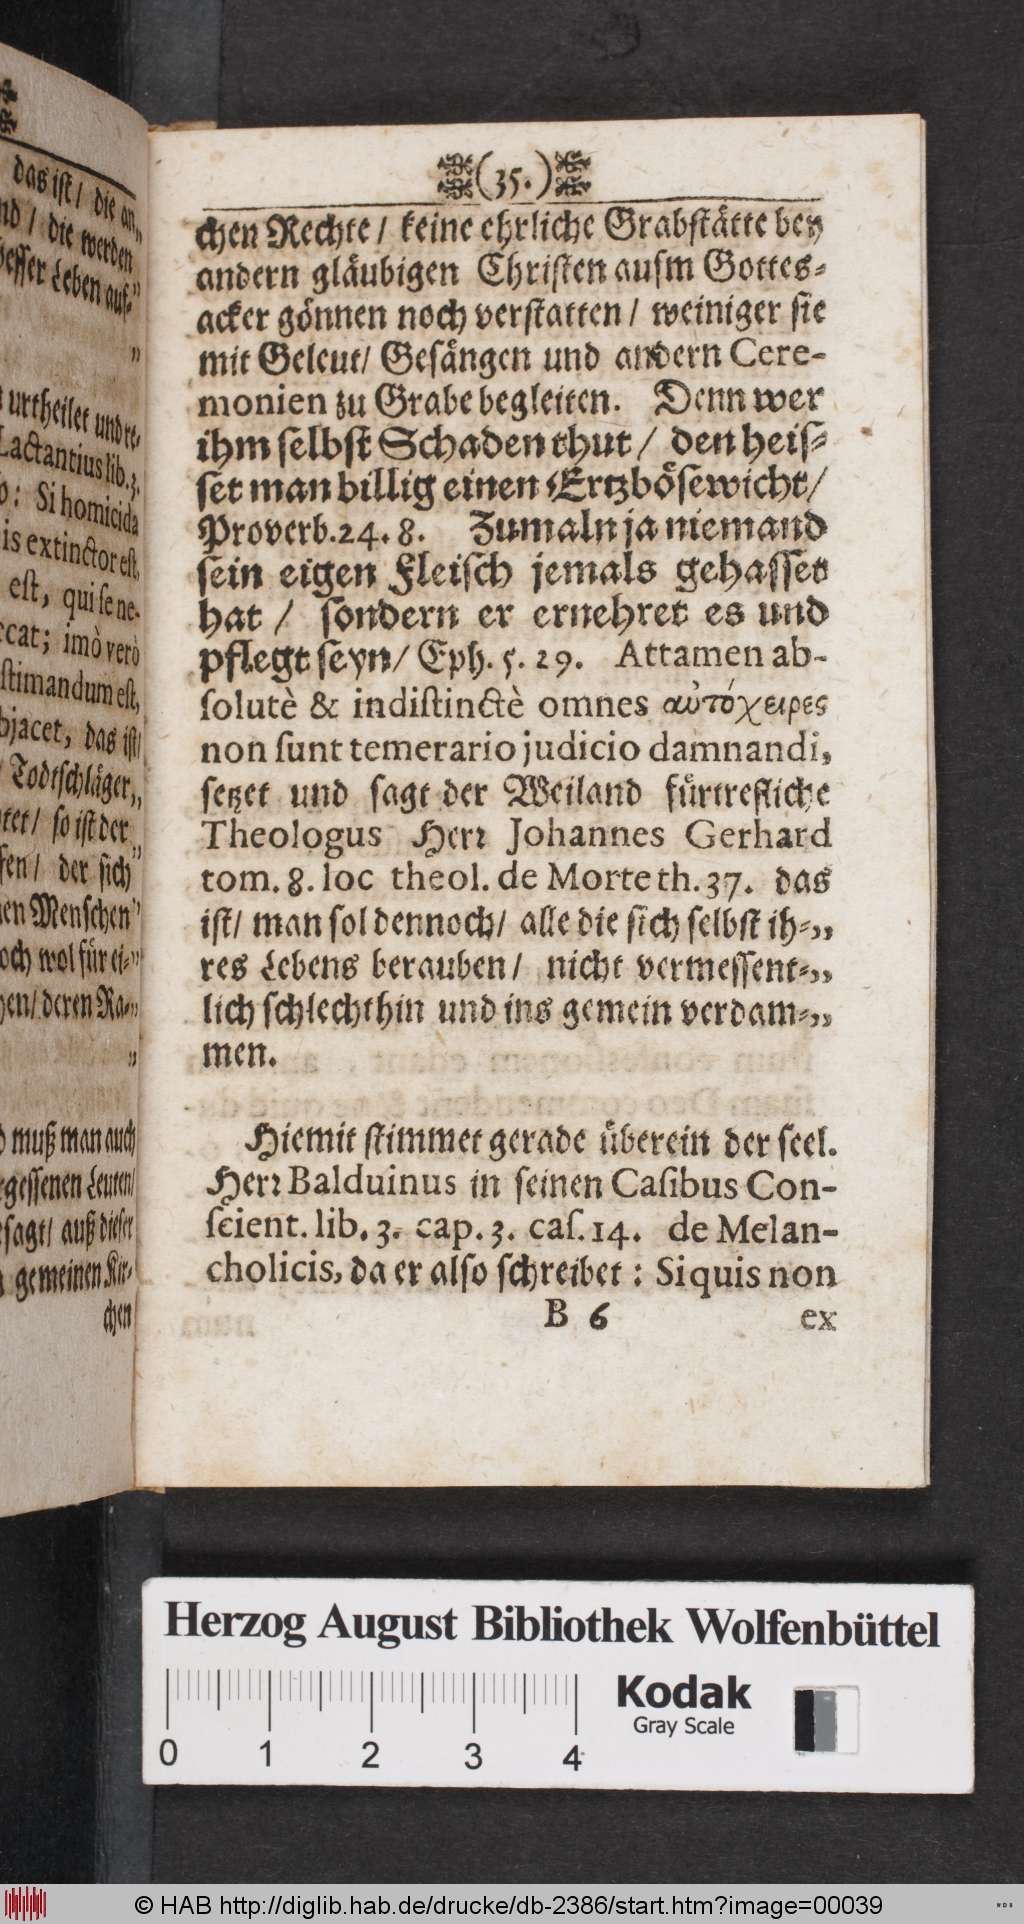 das ist/ die an„
nd / die werden
besser Leben auf-„
„
urtheilet und re-
Lactantius lib. 3.
o: Si homicida
is extinctor est,
est, qui se ne-
ecat; imò verò
stimandum est,
bjacet, das ist/
Todtschläger„
tet/ so ist der„
fen/ der sich
nen Menschen„
och wol für ei-„
hen/ deren Na-„
„
d muß man auch
gessenen Leuten/
sagt/ auß dieser
gemeinen Kir-
chen
(35.)
chen Rechte / keine ehrliche Grabstätte bey
andern gläubigen Christen ausm Gottes-
acker gönnen noch verstatten / weiniger sie
mit Geleut/ Gesängen und andern Cere-
monien zu Grabe begleiten. Denn wer
ihm selbst Schaden thut / den heis-
set man billig einen Ertzbösewicht/
Proverb. 24. 8. Zumaln ja niemand
sein eigen Fleisch jemals gehasset
hat / sondern er ernehret es und
pflegt seyn/ Eph. 5. 29. Attamen ab-
solutè & indistinctè omnes αὐτόχειρες
non sunt temerario judicio damnandi,
setzet und sagt der Weiland fürtrefliche
Theologus Herr Johannes Gerhard
tom. 8. loc theol. de Morte th. 37. das
ist/ man sol dennoch/ alle die sich selbst ih-„
res Lebens berauben/ nicht vermessent-„
lich schlechthin und ins gemein verdam-„
men.
Hiemit stimmet gerade überein der seel.
Herr Balduinus in seinen Casibus Con-
scient. lib. 3. cap. 3. cas. 14. de Melan-
cholicis, da er also schreibet : Si quis non
B 6 ex
Herzog August Bibliothek Wolfenbüttel
Kodak
Gray Scale
0 1 2 3 4
© HAB http://diglib.hab.de/drucke/db-2386/start.htm?image=00039